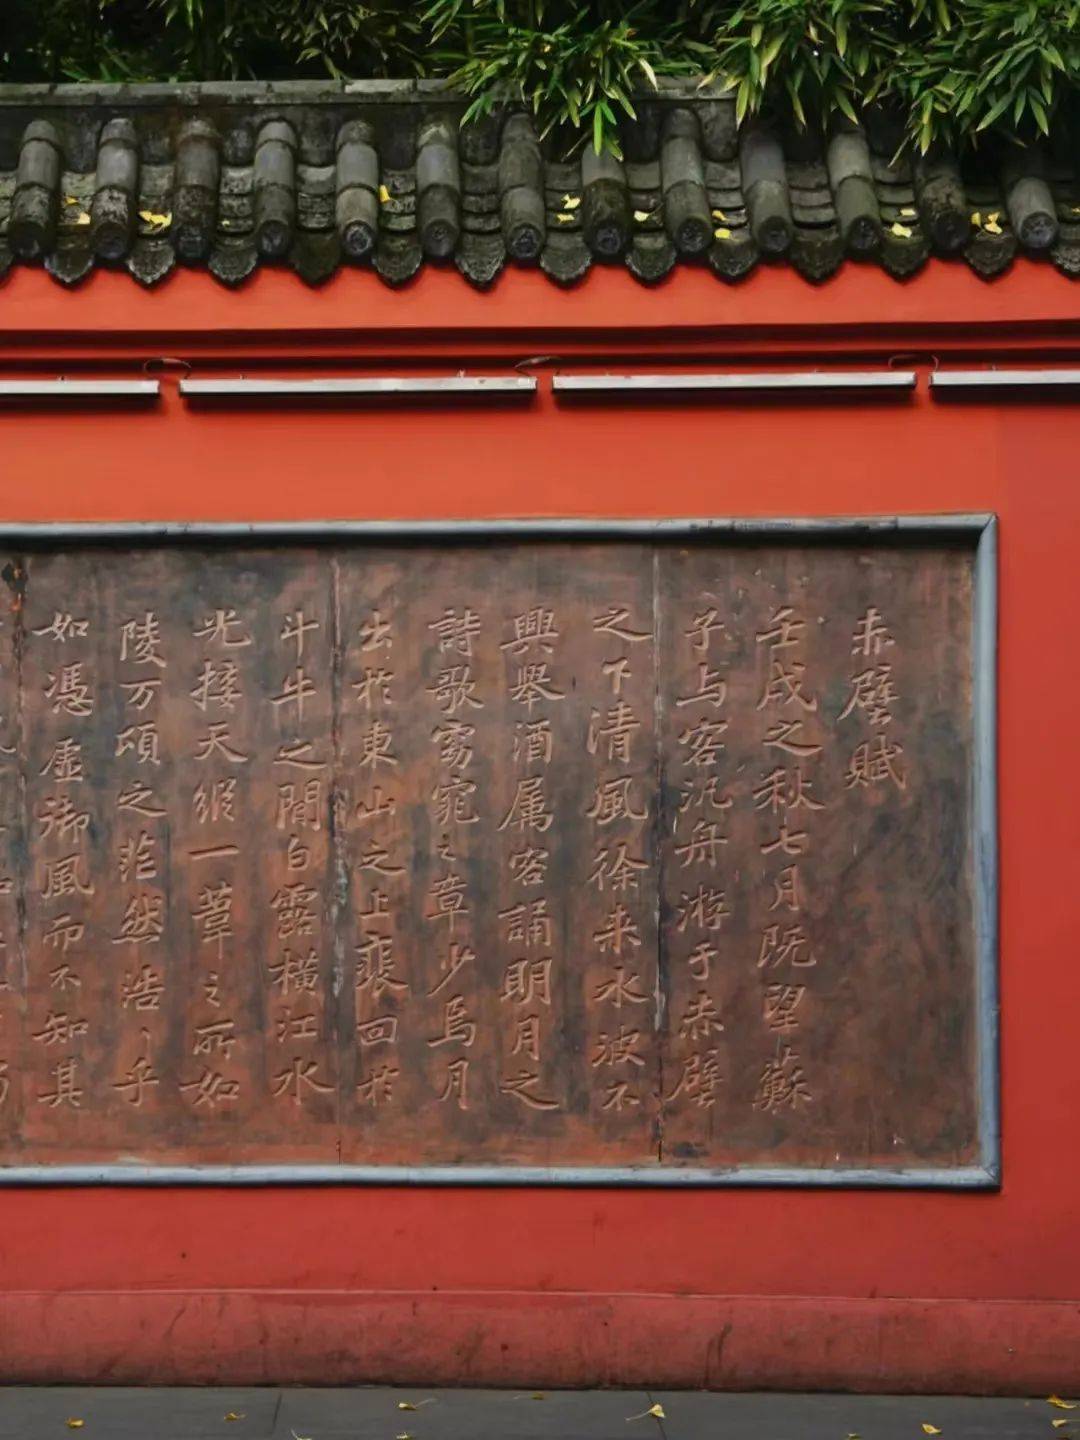 赤壁賦
壬戌之秋七月既望蘇
子与客汎舟游于赤壁
之下清風徐来水波不
興舉酒属客誦明月之
詩歌窈窕之章少焉月
出於東山之上裵回於
斗牛之間白露橫江水
光接天縱一葦之所如
陵万頃之茫然浩〻乎
如馮虛御風而不知其